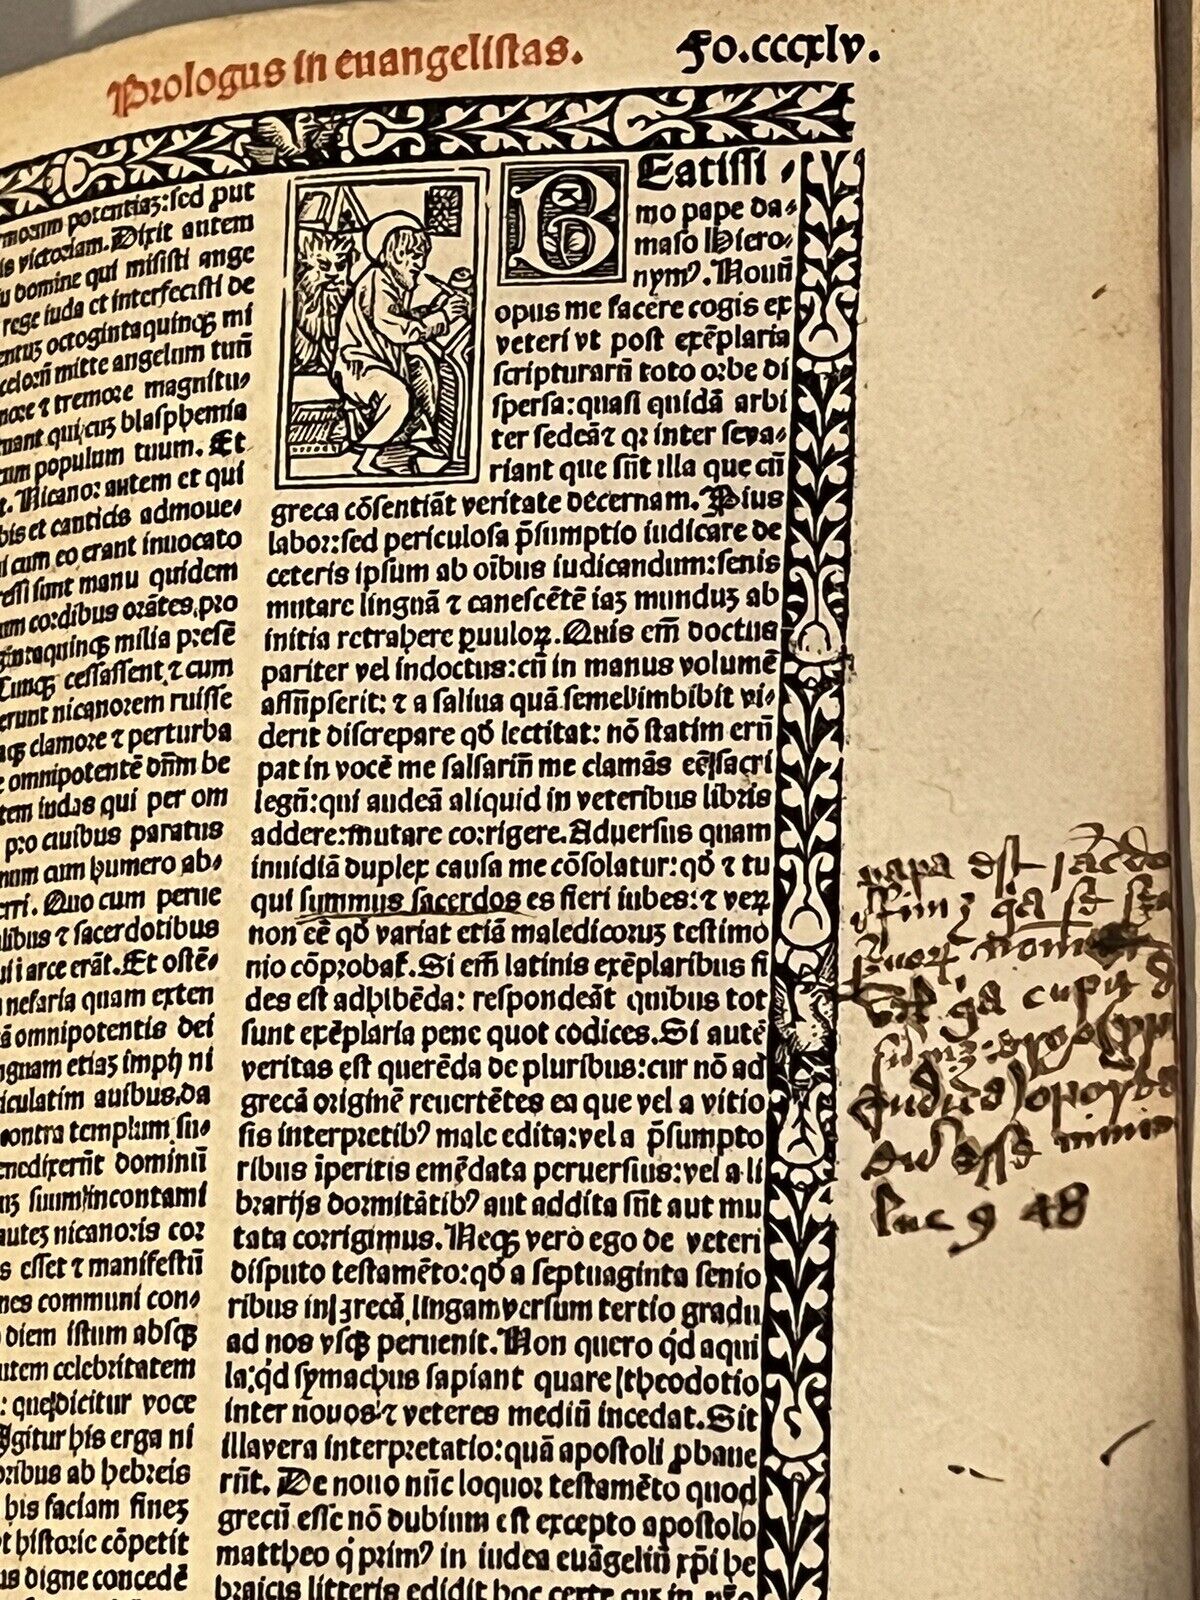 Prologus in euangelistas.
Fo.cccxlv.
morum potentiaz:sed put
is victoriam.Dixit autem
u domine qui misisti ange
rege iuda et interfecisti de
entuz octogintaquinqꝫ mi
celorũ mitte angelum tuũ
more ⁊ tremore magnitu⸗
tuant qui cuz blasphemia
tum populum tuum. Et
t. Nicanor autem et qui
bis et canticis admoue⸗
i cum eo erant inuocato
essi sunt manu quidem
um cordibus orãtes,pro
gintaquinqꝫ milia presẽ
Cunqꝫ cessassent ⁊ cum
erunt nicanorem ruisse
aqꝫ clamore ⁊ perturba
omnipotentẽ dñm be
tem iudas qui per om
pro ciuibus paratus
num cum humero ab⸗
erri. Quo cum perue
libus ⁊ sacerdotibus
ui i arce erãt.Et ostẽ⸗
nefaria quam exten
ã omnipotentis dei
nguam etiaz imphj ni
iculatim auibus,da
contra templum su⸗
enedixerũt dominũ
uz suum incontami
autez nicanoris cor
s esset ⁊ manifestũ
nes communi con⸗
diem istum absqꝫ
utem celebritatem
: que dicitur voce
Igitur his erga ni
oribus ab hebreis
his faciam finez
t historie cõpetit
us digne concedẽ
BEatissi⸗
mo pape da⸗
maso Hiero⸗
nymꝰ. Nouũ
opus me facere cogis ex
veteri vt post exẽplaria
scripturarũ toto orbe di
spersa:quasi quidã arbi
ter sedeã⁊ qꝛ inter seva⸗
riant que sũt illa que cũ
greca cõsentiãt veritate decernam.Pius
labor:sed periculosa p̃sumptio iudicare de
ceteris ipsum ab oĩbus iudicandum:senis
mutare linguã ⁊ canescẽtẽ iaz munduz ab
initia retrahere ꝑuuloꝝ.Quis em̃ doctus
pariter vel indoctus:cũ in manus volumẽ
assũpserit: ⁊ a saliua quã semel imbibit vi⸗
derit discrepare qđ lectitat: nõ statim erũ
pat in vocẽ me falsariũ me clamãs eẽ sacri
legũ:qui audeã aliquid in veteribus libris
addere:mutare corrigere.Aduersus quam
inuidiã duplex causa me cõsolatur:qđ ⁊ tu
qui summus sacerdos es fieri iubes:⁊ veꝝ
non eẽ qđ variat etiã maledicoruz testimo
nio cõprobat̃.Si em̃ latinis exẽplaribus fi
des est adhibẽda: respondeãt quibus tot
sunt exẽplaria pene quot codices.Si autẽ
veritas est querẽda de pluribus:cur nõ ad
grecã originẽ reuertẽtes ea que vel a vitio
sis interpretibꝰ male edita:vel a p̃sumpto
ribus ĩperitis emẽdata peruersius:vel a li
brarijs dormitãtibꝰ aut addita sũt aut mu
tata corrigimus.Neqꝫ vero ego de veteri
disputo testamẽto:qđ a septuaginta senio
ribus in grecã lingam versum tertio gradu
ad nos vsqꝫ peruenit.Non quero qđ aqui
la:qđ symachus sapiant quare theodotio
inter nouos ⁊ veteres mediũ incedat.Sit
illa vera interpretatio:quã apostoli ꝓbaue
rũt. De nouo nũc loquor testamẽto quod
grecũ esse nõ dubium est excepto apostolo
mattheo q̇ primꝰ in iudea euãgeliũ xp̃i he
braicis litteris edidit hoc certe cuz in nr̃o
papa est
cupit
esse
luc 9 48